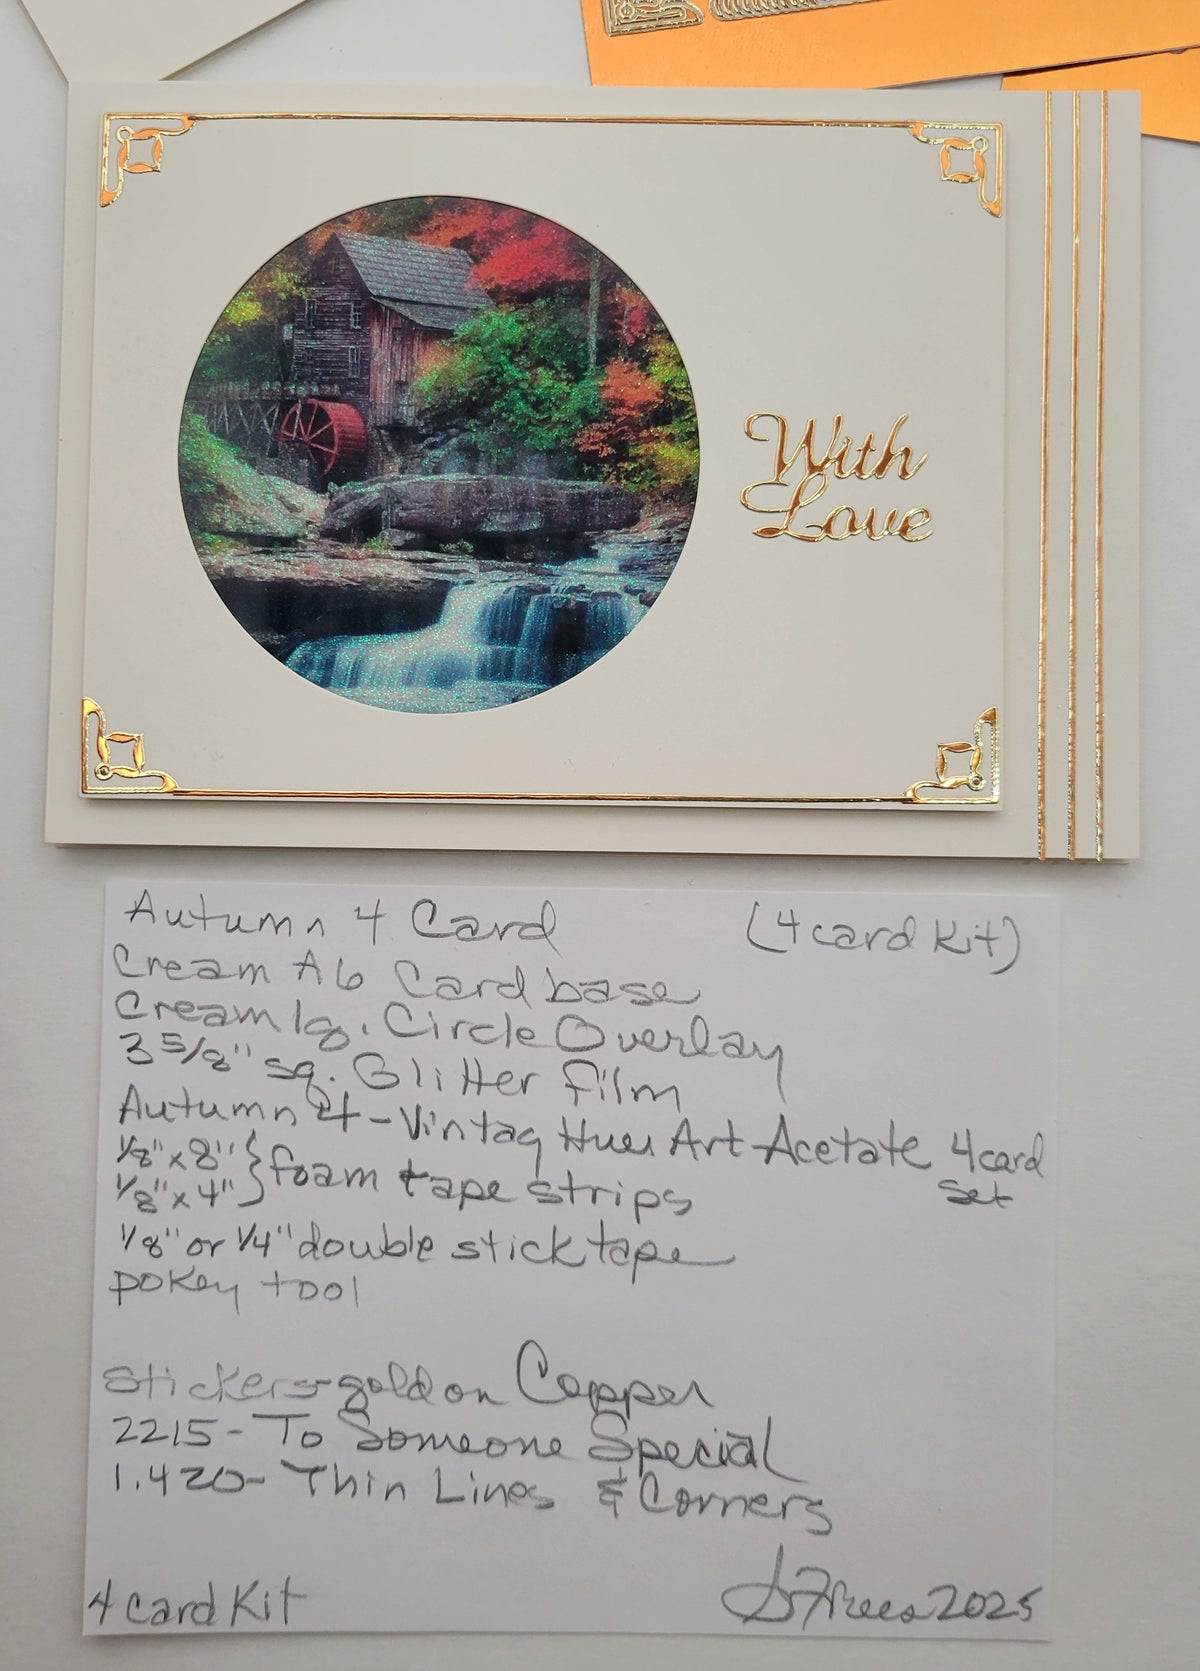 With
Love
Autumn 4 Card (4 card Kit)
Cream A6 Card base
Cream lg. Circle Overlay
3 5/8" sq. Glitter film
Autumn 4 - Vintag Hues Art Acetate 4 card set
1/8" x 8" } foam tape strips
1/8" x 4"
1/8" or 1/4" double stick tape
pokey tool
stickers - gold on Copper
2215 - To Someone Special
1.420 - Thin Lines & Corners
4 card Kit 2025